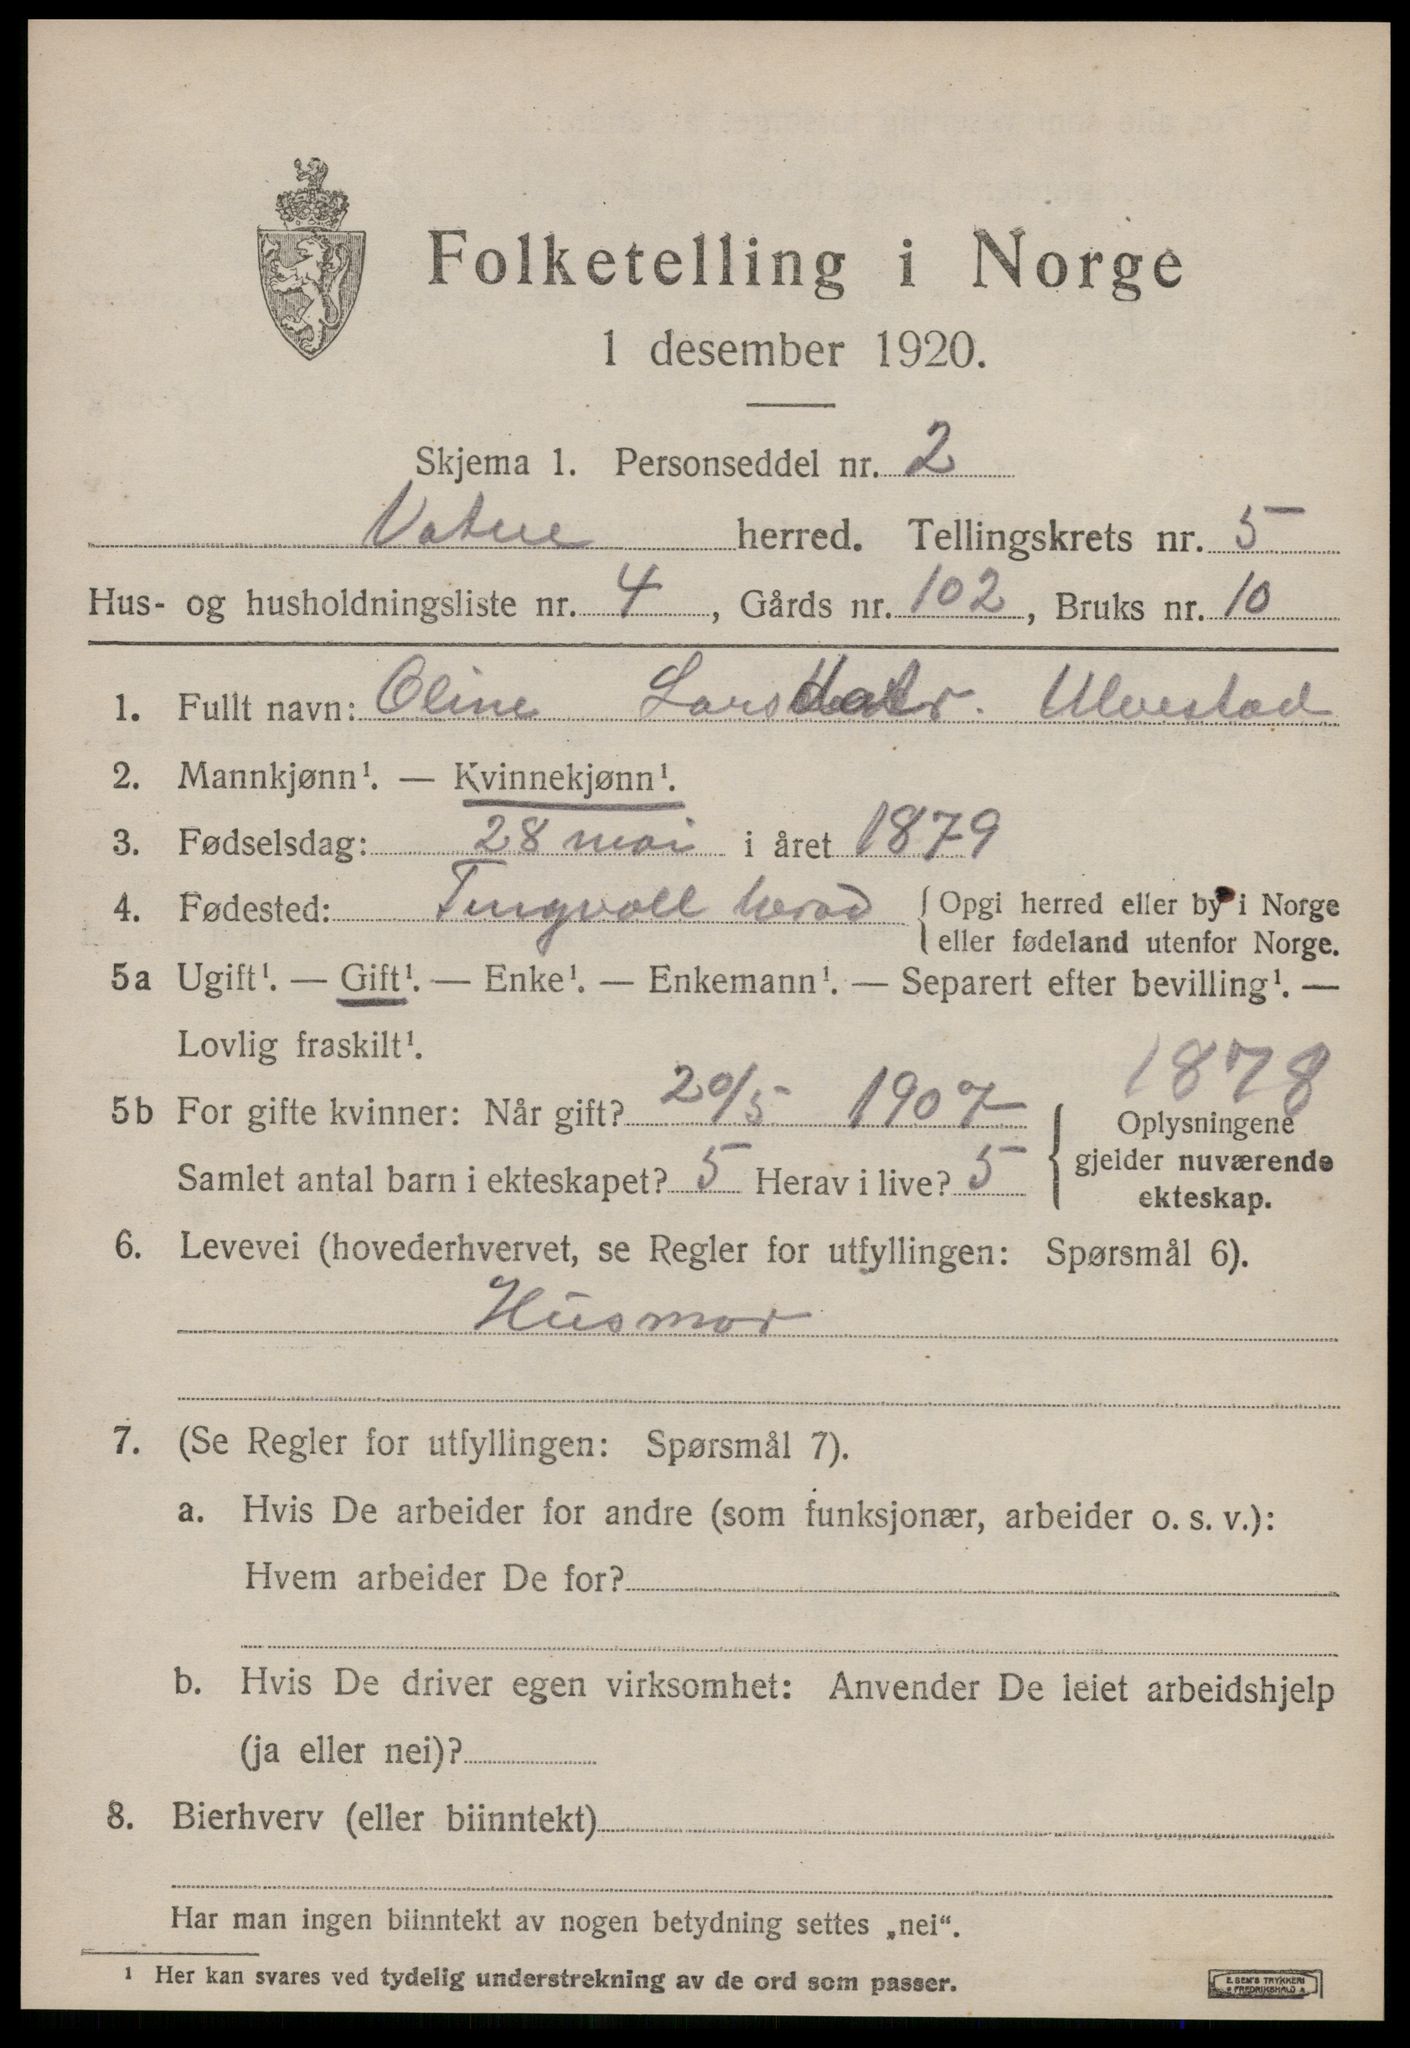 Folketelling i Norge
1 desember 1920.
Skjema 1. Personseddel nr. 2
Vatne herred. Tellingskrets nr. 5
Hus- og husholdningsliste nr. 4, Gårds nr. 102, Bruks nr. 10
1. Fullt navn: Oline Larsdatr. Ulvestad
2. Mannkjønn¹. — Kvinnekjønn¹.
3. Fødselsdag: 28 mai i året 1879
4. Fødested: Tingvoll herad { Opgi herred eller by i Norge
eller fødeland utenfor Norge.
5a Ugift¹. — Gift¹. — Enke¹. — Enkemann¹. — Separert efter bevilling¹. —
Lovlig fraskilt¹.
1878
5b For gifte kvinner: Når gift? 20/5 1907
Samlet antal barn i ekteskapet? 5 Herav i live? 5
{ Oplysningene
gjelder nuværende
ekteskap.
6. Levevei (hovederhvervet, se Regler for utfyllingen: Spørsmål 6).
Husmor
7. (Se Regler for utfyllingen: Spørsmål 7).
a. Hvis De arbeider for andre (som funksjonær, arbeider o. s. v.):
Hvem arbeider De for?
b. Hvis De driver egen virksomhet: Anvender De leiet arbeidshjelp
(ja eller nei)?
8. Bierhverv (eller biinntekt)
Har man ingen biinntekt av nogen betydning settes „nei“.
¹ Her kan svares ved tydelig understrekning av de ord som passer.
E. SEM'S TRYKKERI
FREDRIKSHALD